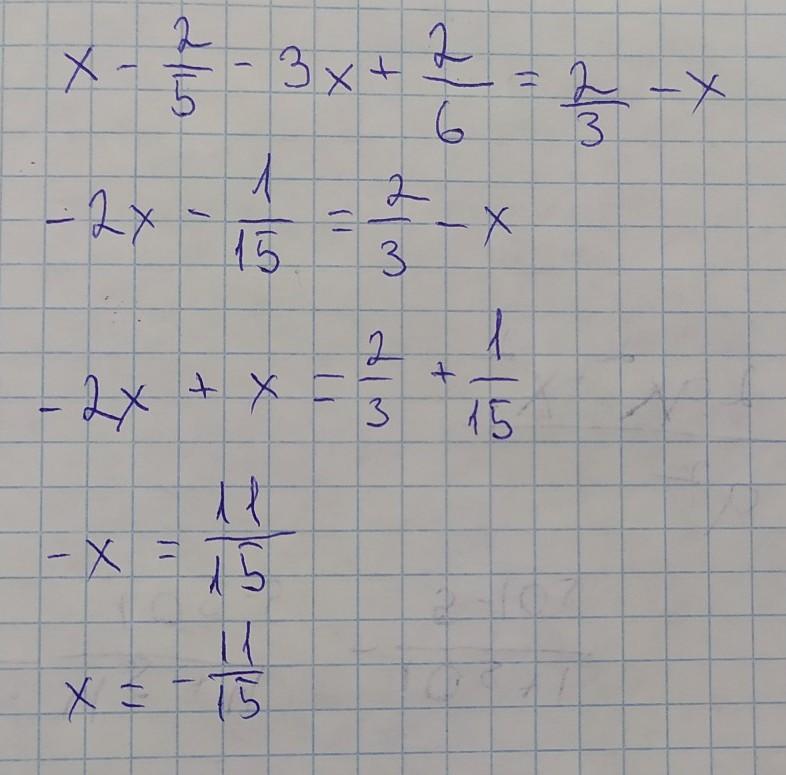 x - 2/5 - 3x + 2/6 = 2/3 - x
-2x - 1/15 = 2/3 - x
-2x + x = 2/3 + 1/15
-x = 11/15
x = -11/15